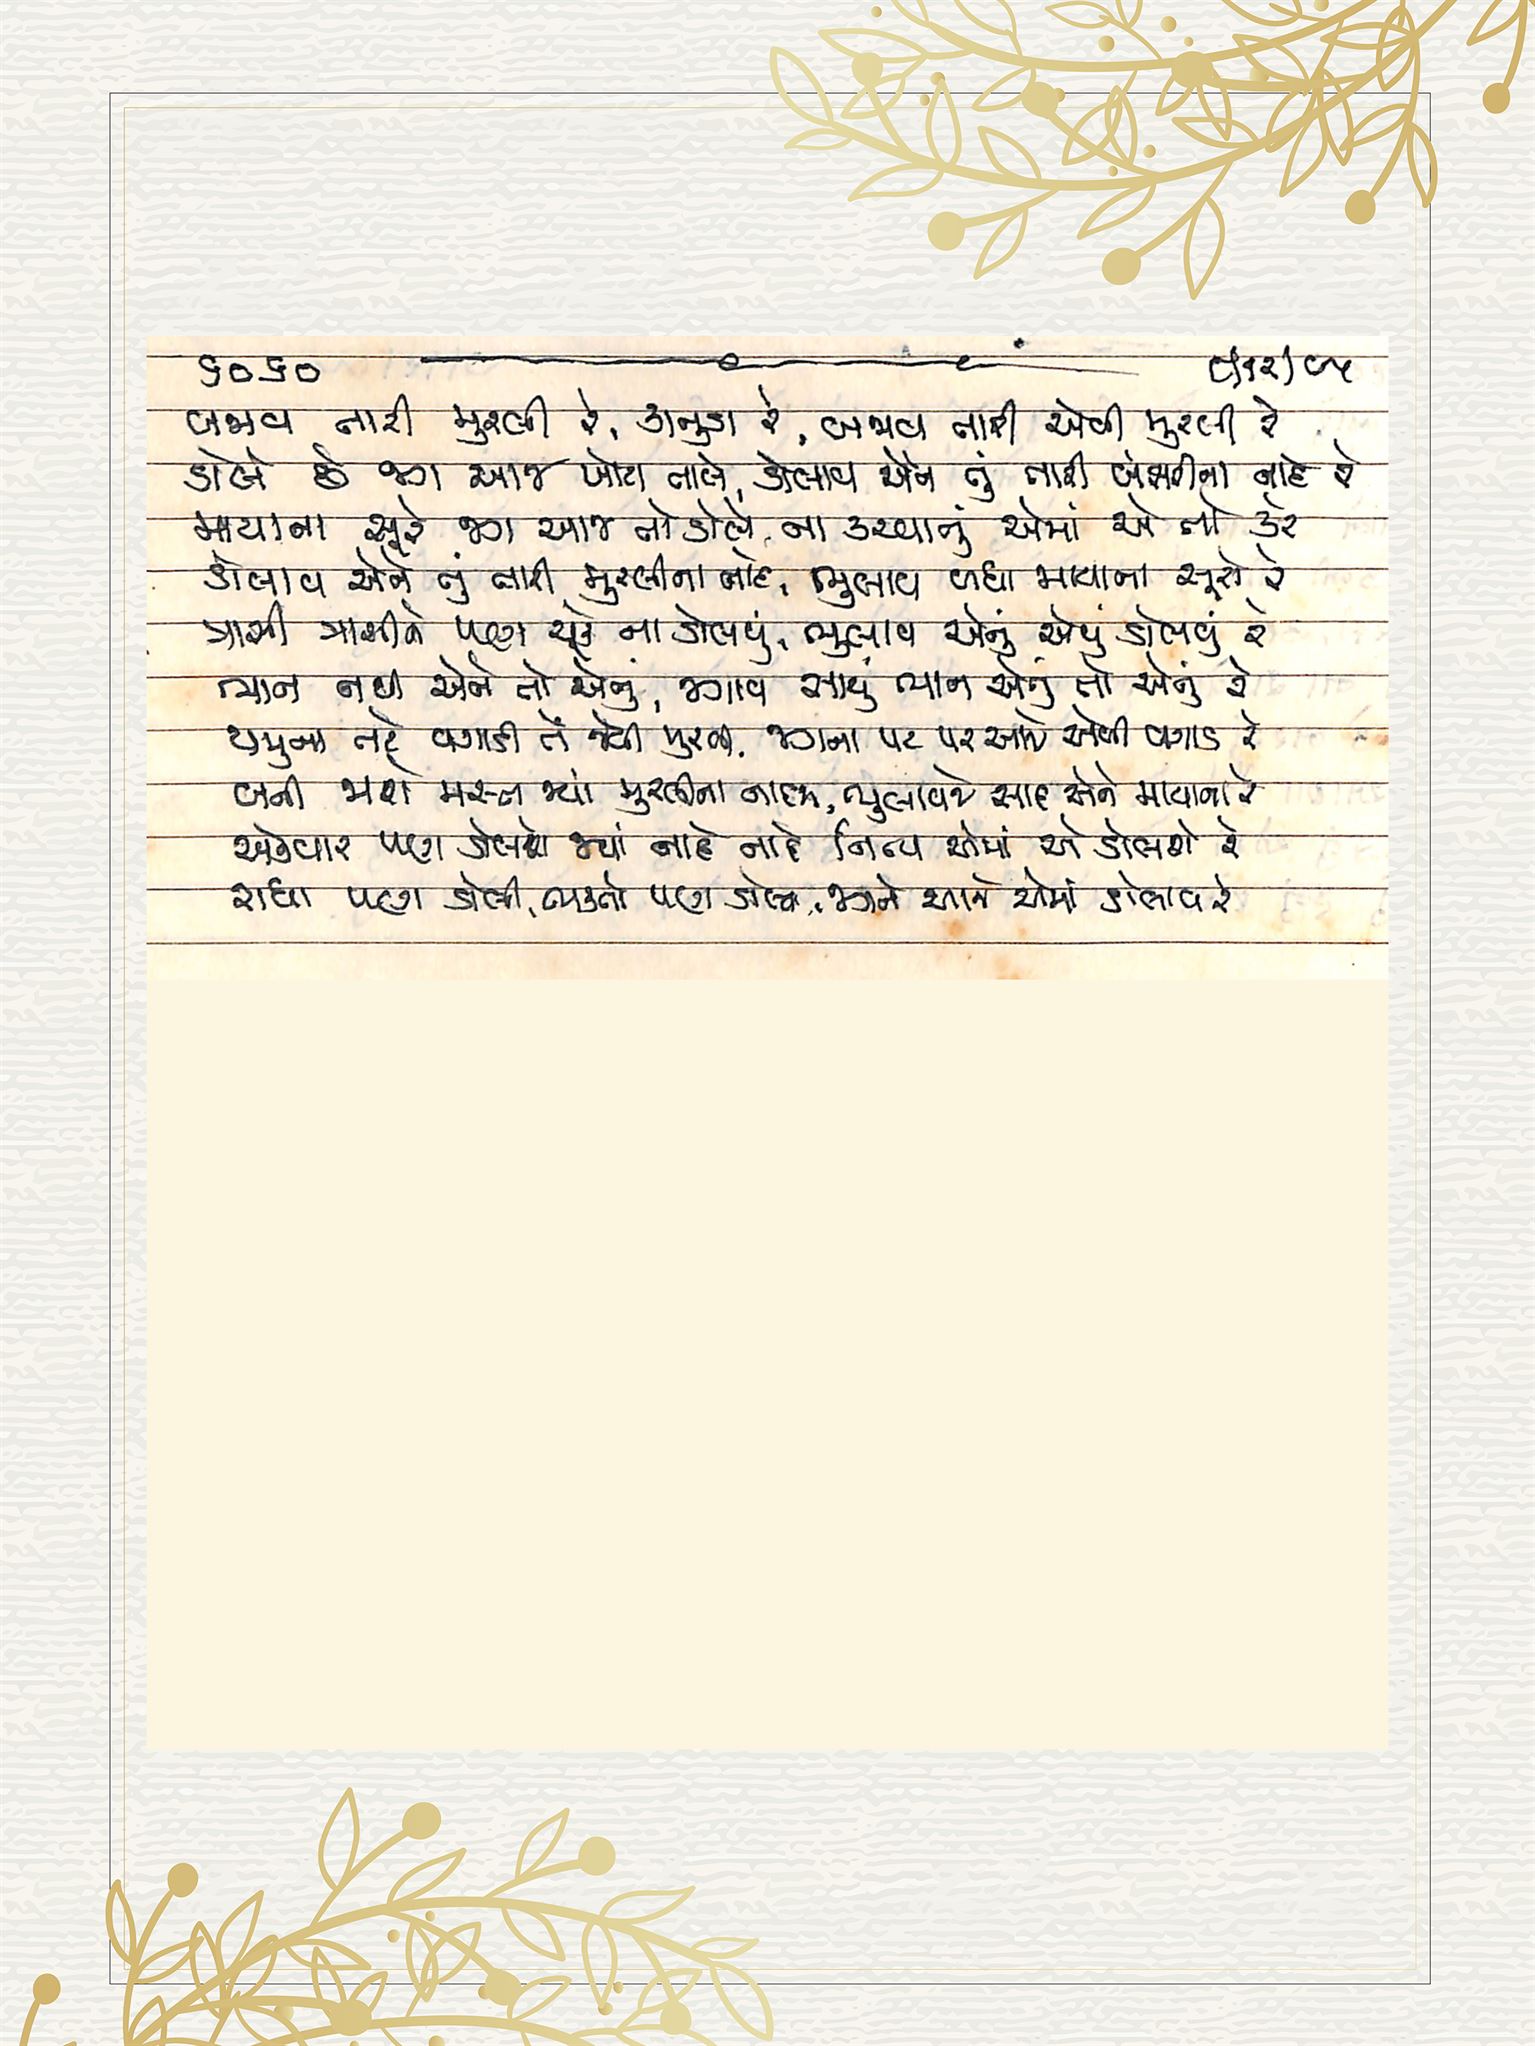 ૬૦૬૦ ૯/૧૨/૯૫
બજાવ તારી મુરલી રે, કાનુડા રે, બજાવ તારી એવી મુરલી રે
ડોલે છે જગ આજ ખોટા તાલે, ડોલાવ એને તું તારી બંસરીના નાદે રે
માયાના સૂરે જગ આજ તો ડોલે, ના કરવાનું એમાં એ તો કરે
ડોલાવ એને તું તારી મુરલીના નાદે, ભુલાવ બધા માયાના સૂરો રે
ત્રાસી ત્રાસીને પણ ચૂકે ના ડોલવું, ભુલાવ એનું એવું ડોલવું રે
ભાન નથી એને તો એનું, જગાવ સાચું ભાન એનું તો એનું રે
યમુના તટે વગાડી તેં જેવી મુરલી, જગના પટ પર આજે એવી વગાડ રે
બની જાશે મસ્ત જ્યાં મુરલીના નાદમાં, ભુલાવજે સાદ એને માયાના રે
એકવાર પણ ડોલશે જ્યાં નાદે નાદે નિત્ય એમાં એ ડોલશે રે
રાધા પણ ડોલી, ભક્તો પણ ડોલ્યા, જગને આજે એમાં ડોલાવ રે